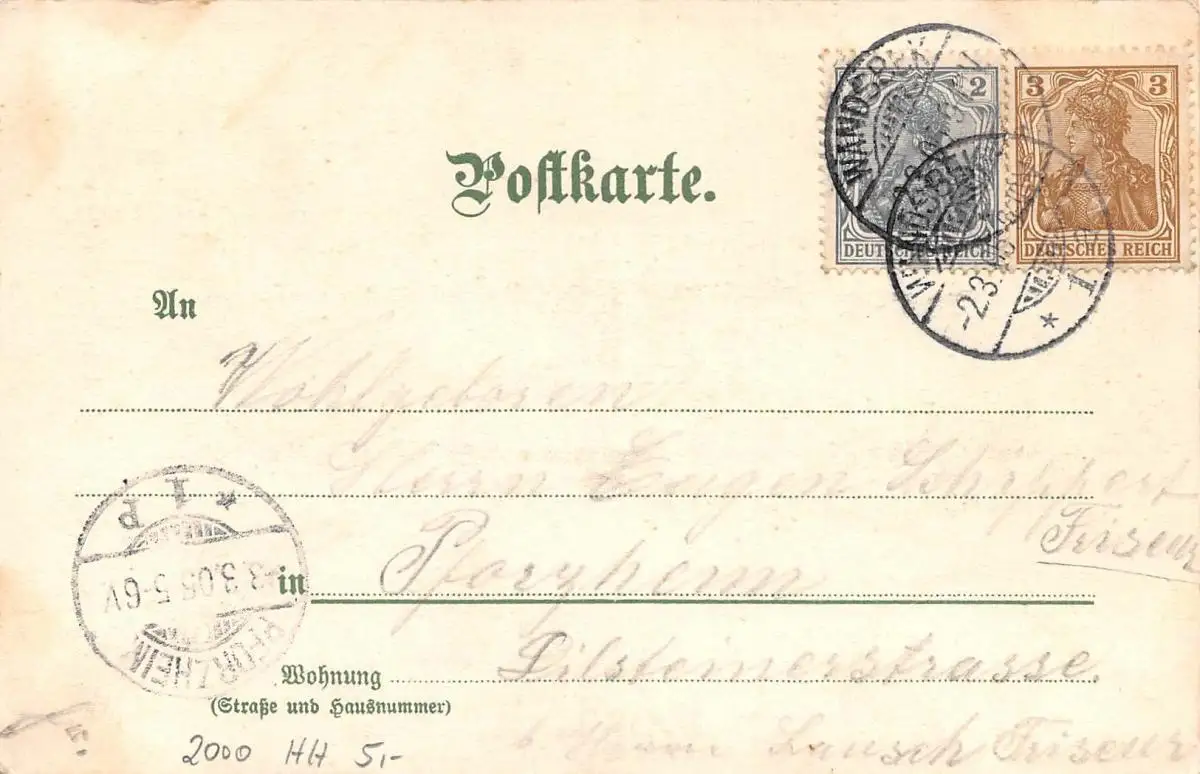 2 3 3
DEUTSCHES REICH DEUTSCHES REICH
WANDSBEK
WANDSBEK
-2.3.
1
*
Postkarte.
An
Wohlgeboren
Herrn Eugen
Friseur
in Pforzheim
* 1 P
3.3.06 5-6V
PFORZHEIM
Wohnung
(Straße und Hausnummer)
b Herrn Lausch Friseur
2000 HH 5,-